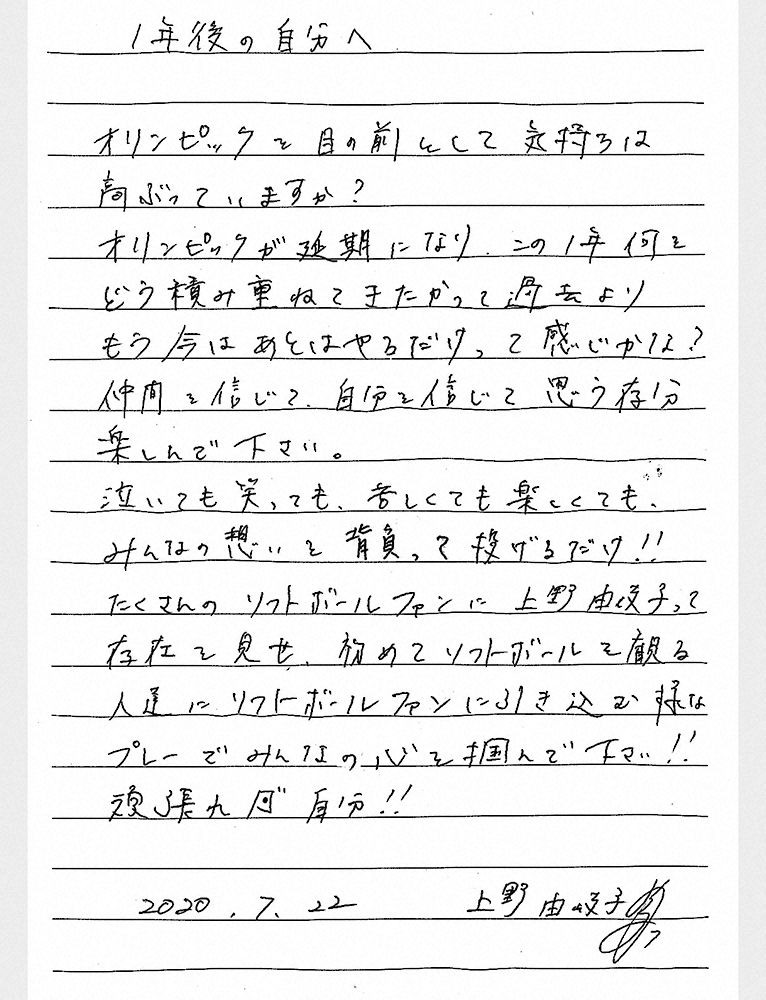 1年後の自分へ
オリンピックを目の前にして気持ちは
高ぶっていますか?
オリンピックが延期になり、この1年何を
どう積み重ねてきたかって過去より
もう今はあとはやるだけって感じかな?
仲間を信じて、自分を信じて思う存分
楽しんで下さい。
泣いても笑っても、苦しくても楽しくても、
みんなの想いを背負って投げるだけ!!
たくさんのソフトボールファンに上野由岐子って
存在を見せ、初めてソフトボールを観る
人達にソフトボールファンに引き込む様な
プレーでみんなの心を掴んで下さい!!
頑張れ 自分!!
2020.7.22 上野由岐子